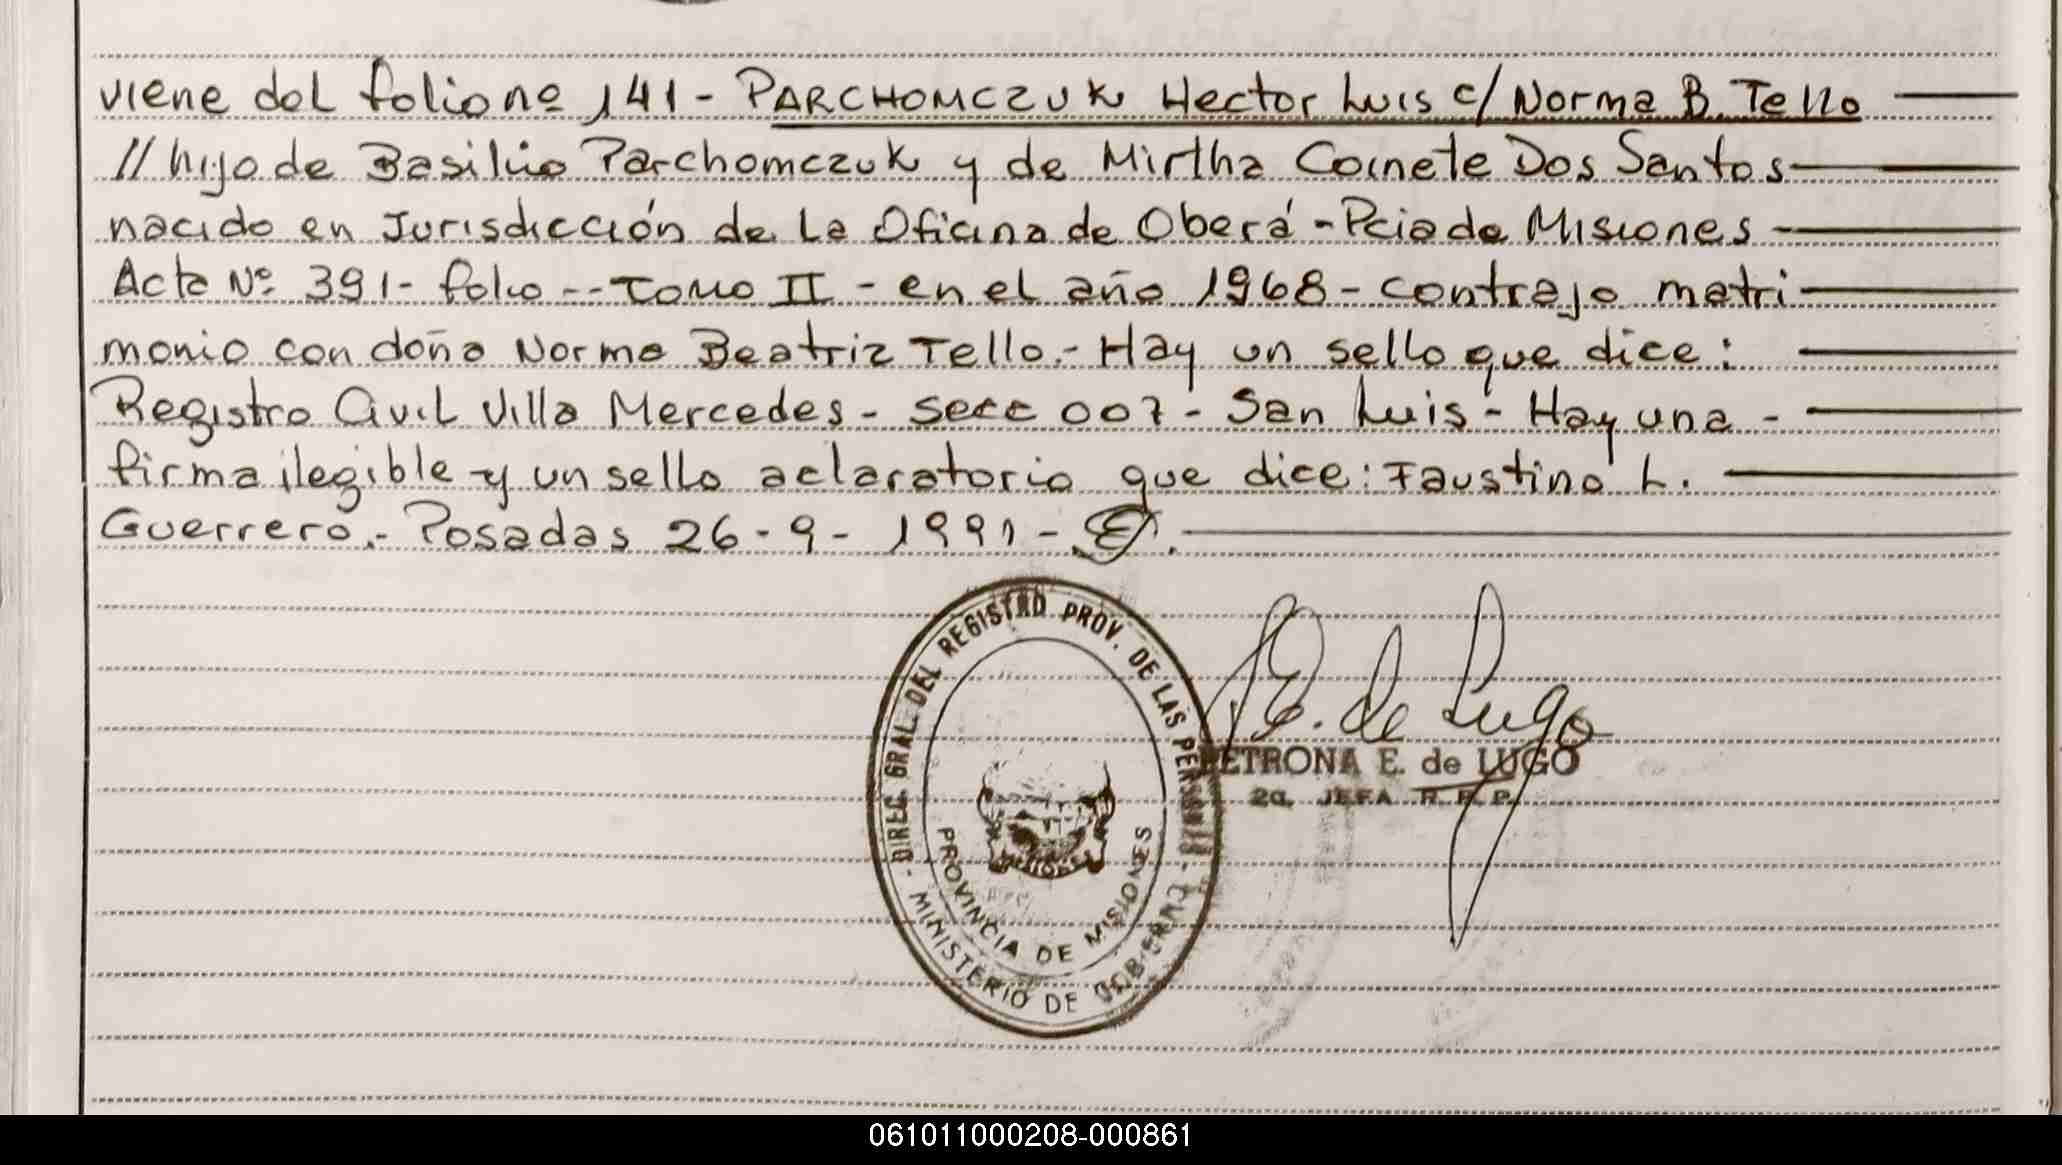 viene del folio nº 141 - PARCHOMCZUK Hector Luis c/ Norma B. Tello
// hijo de Basilio Parchomczuk y de Mirtha Coinete Dos Santos
nacido en Jurisdicción de La Oficina de Oberá - Pcia de Misiones
Acta Nº 391 - folio -- Tomo II - en el año 1968 - contrajo matri
monio con doña Norma Beatriz Tello.- Hay un sello que dice:
Registro Civil Villa Mercedes - Secc 007 - San Luis - Hay una -
firma ilegible y un sello aclaratorio que dice: Faustino L.
Guerrero.- Posadas 26-9-1991 -
DIREC. GRAL. DEL REGISTRO PROV. DE LAS PERSONAS
MINISTERIO DE GOBIERNO
PROVINCIA DE MISIONES
E. de Lugo
PETRONA E. de LUGO
2a. JEFA R.P.P.
061011000208-000861